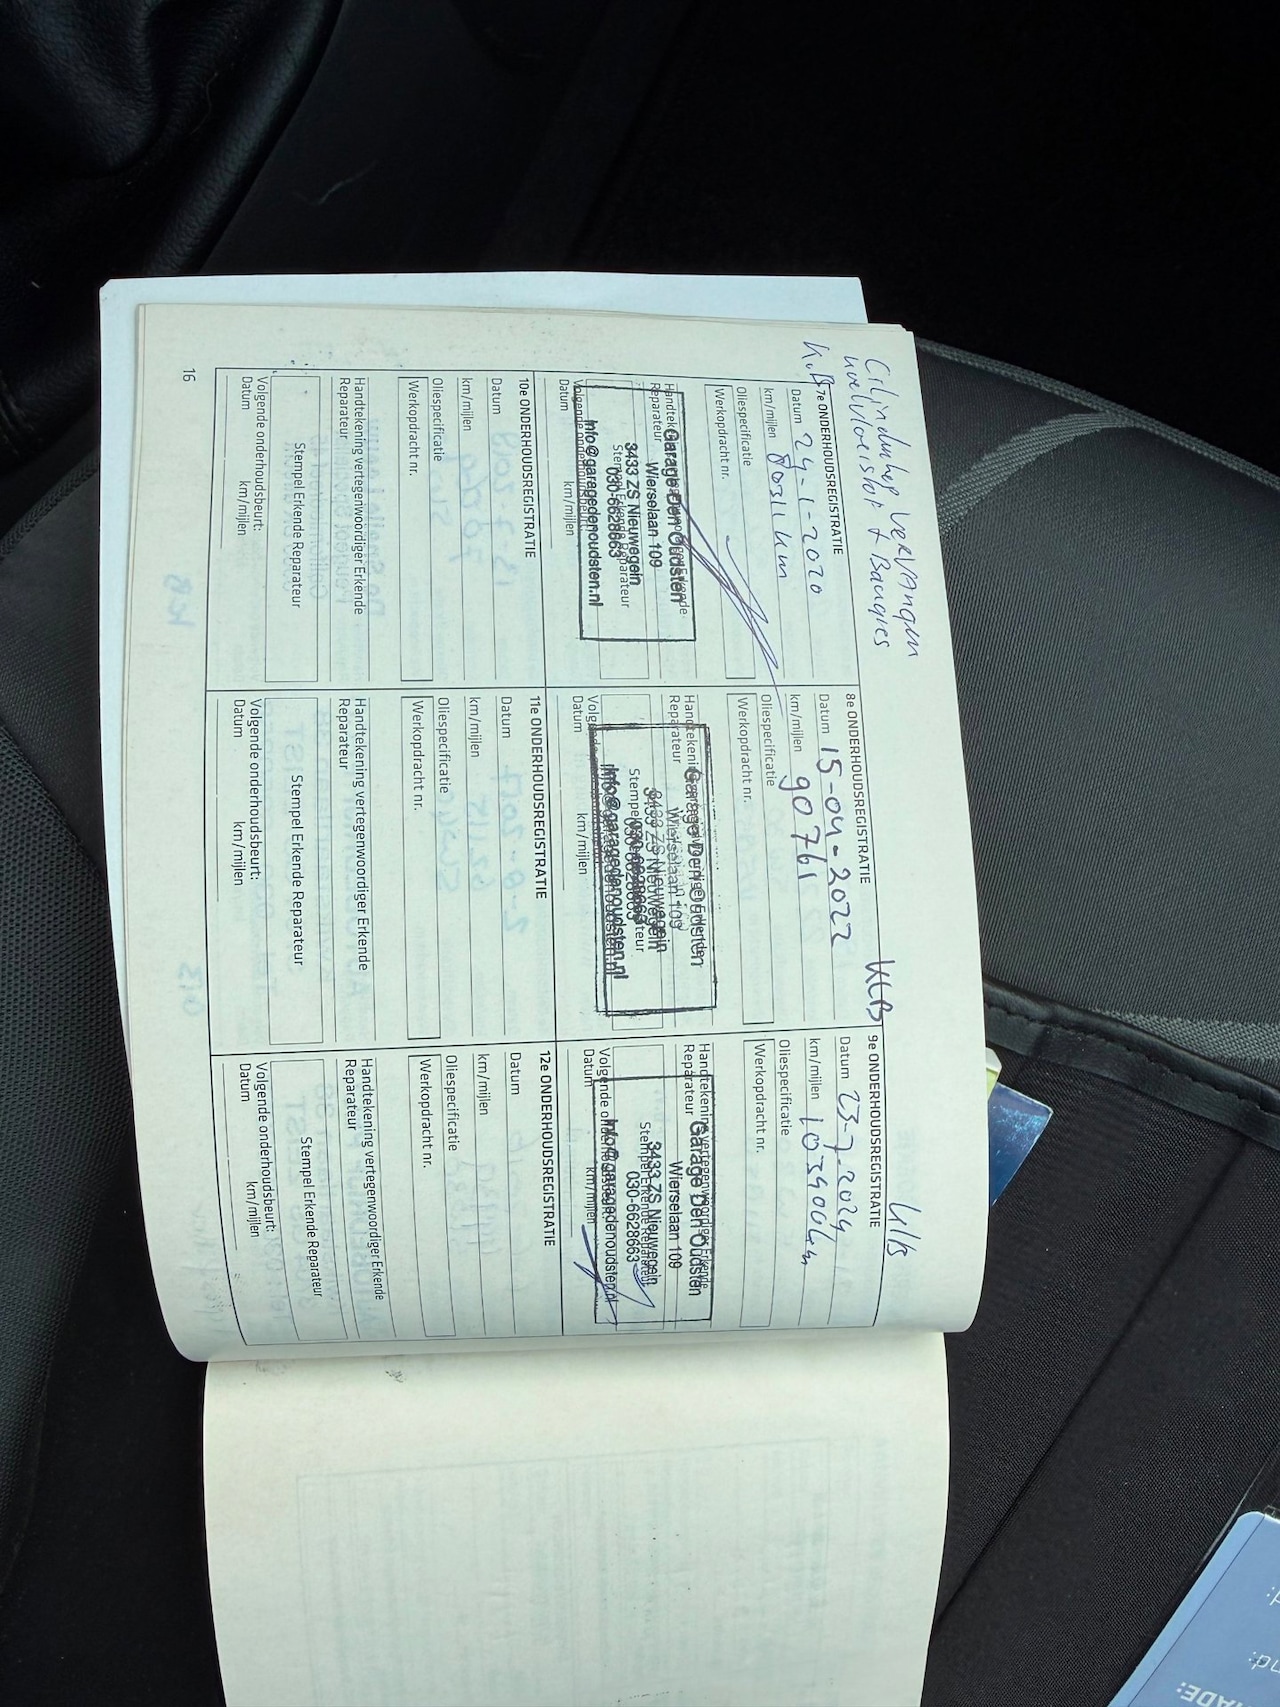 Cilinderkop vervangen
koelvloeistof + Baugies
K.B
7e ONDERHOUDSREGISTRATIE
Datum 24-1-2020
km/mijlen 80311 km
Oliespecificatie
Werkopdracht nr.
Reparateur
Garage Den Oudsten
Wierselaan 109
3433 ZS Nieuwegein
030-6628663
Info@garagedenoudsten.nl
Volgende onderhoudsbeurt:
Datum km/mijlen
KLB
8e ONDERHOUDSREGISTRATIE
Datum 15-04-2022
km/mijlen 90761
Oliespecificatie
Werkopdracht nr.
Reparateur
Garage Den Oudsten
Wierselaan 109
3433 ZS Nieuwegein
030-6628663
Info@garagedenoudsten.nl
Datum km/mijlen
9e ONDERHOUDSREGISTRATIE
Datum 23-7-2024
km/mijlen 103900 km
Oliespecificatie
Werkopdracht nr.
Handtekening vertegenwoordiger Erkende
Reparateur
Garage Den Oudsten
Wierselaan 109
3433 ZS Nieuwegein
030-6628663
Stempel Erkende Reparateur
Info@garagedenoudsten.nl
Datum km/mijlen
10e ONDERHOUDSREGISTRATIE
Datum
km/mijlen
Oliespecificatie
Werkopdracht nr.
Handtekening vertegenwoordiger Erkende
Reparateur
Stempel Erkende Reparateur
Volgende onderhoudsbeurt:
Datum km/mijlen
11e ONDERHOUDSREGISTRATIE
Datum
km/mijlen
Oliespecificatie
Werkopdracht nr.
Handtekening vertegenwoordiger Erkende
Reparateur
Stempel Erkende Reparateur
Volgende onderhoudsbeurt:
Datum km/mijlen
12e ONDERHOUDSREGISTRATIE
Datum
km/mijlen
Oliespecificatie
Werkopdracht nr.
Handtekening vertegenwoordiger Erkende
Reparateur
Stempel Erkende Reparateur
Volgende onderhoudsbeurt:
Datum km/mijlen
16